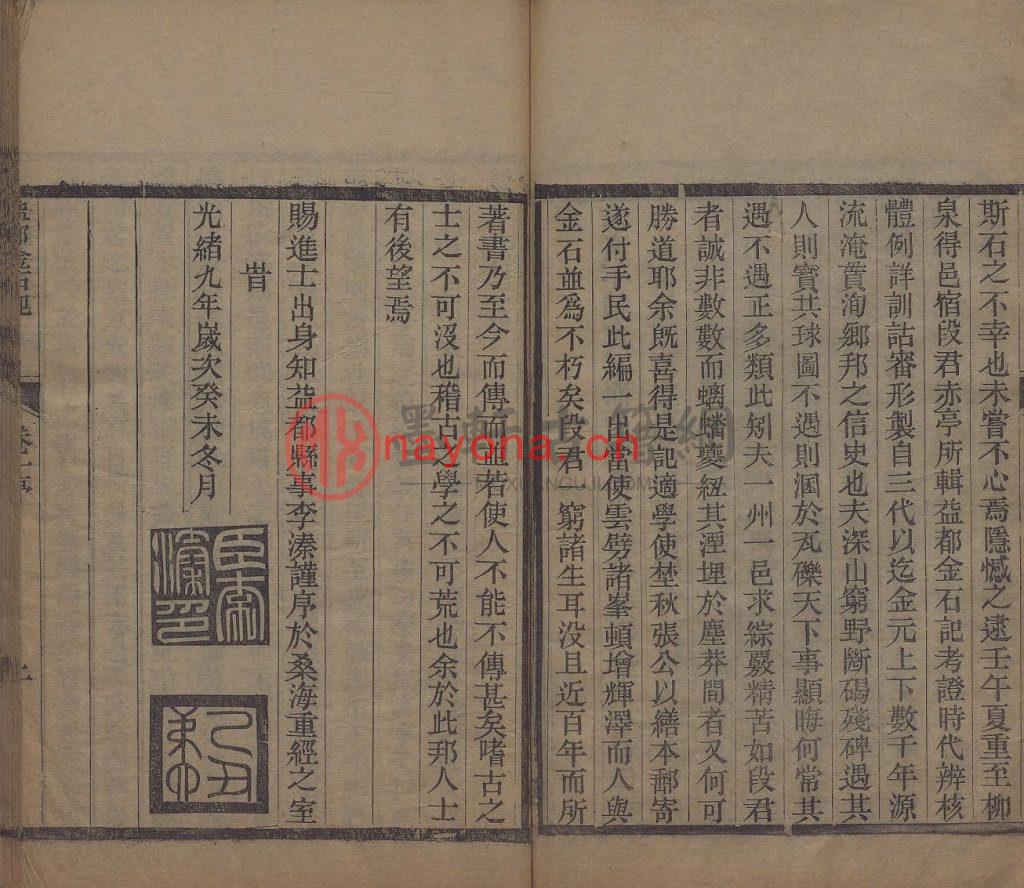 斯石之不幸也未嘗不心焉隱憾之逮壬午夏重至柳
泉得邑宿段君赤亭所輯益都金石記考證時代辨核
體例詳訓詁審形製自三代以迄金元上下數千年源
流淹貫洵鄉邦之信史也夫深山窮野斷碣殘碑遇其
人則寶共球圖不遇則溷於瓦礫天下事顯晦何常其
遇不遇正多類此矧夫一州一邑求綜覈精苦如段君
者誠非數數而螭蟠夔紐其湮埋於塵莽間者又何可
勝道耶余既喜得是記適學使埜秋張公以繕本郵寄
遂付手民此編一出當使雲劈諸峯頓增輝澤而人與
金石並為不朽矣段君一窮諸生耳没且近百年而所
著書乃至今而傳而並若使人不能不傳甚矣嗜古之
士之不可沒也稽古之學之不可荒也余於此邦人士
有後望焉
賜進士出身知益都縣事李溱謹序於桑海重經之室
旹
光緒九年嵗次癸未冬月
臣溱
益都金石記
nayona.cn